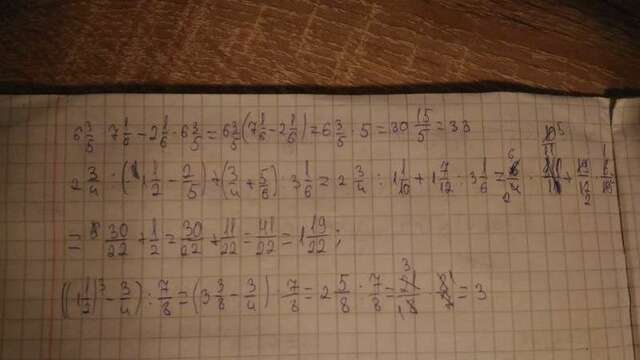 6 3/5 · 7 1/6 - 2 1/6 · 6 3/5 = 6 3/5 (7 1/6 - 2 1/6) = 6 3/5 · 5 = 30 15/5 = 33
2 3/4 : (1 1/2 - 2/5) + (3/4 + 5/6) · 3 1/6 = 2 3/4 : 1 1/10 + 1 7/12 · 3 1/6 =
= 30/22 + 1/2 = 30/22 + 11/22 = 41/22 = 1 19/22;
((1 1/2)^3 - 3/4) : 7/8 = (3 3/8 - 3/4) · 7/8 = 2 5/8 · 7/8 = = 3